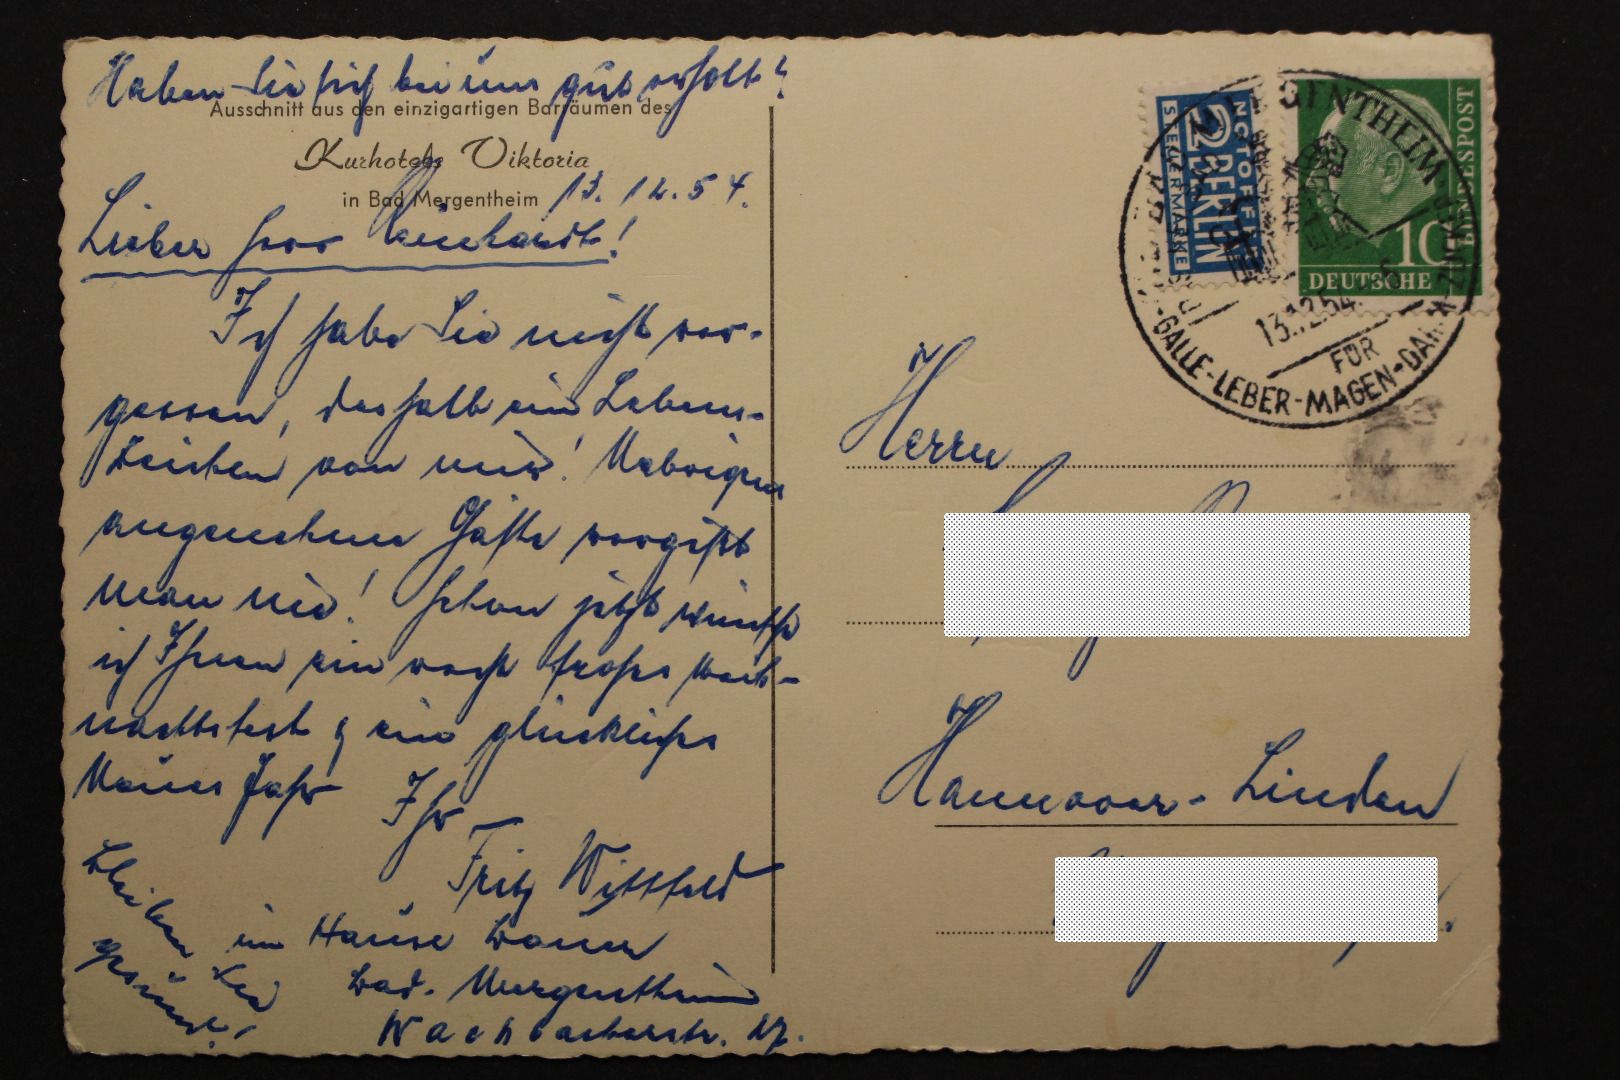 Haben Sie sich bei uns gut erholt?
Ausschnitt aus den einzigartigen Barräumen des
Kurhotels Viktoria
in Bad Mergentheim
13.12.54.
Lieber Herr Reichardt!
Ich habe Sie nicht ver-
gessen, deshalb ein Lebens-
zeichen von mir! Uebrigens
angenehme Gäste vergißt
man nie! Schon jetzt wünsche
ich Ihnen ein recht frohes Weih-
nachtsfest & ein glückliches
Neues Jahr Ihr
Fritz Wittfeld
im Hause Bauer
Bad. Mergentheim
Wachbacherstr. 27.
Bleiben Sie
gesund!
NOTOPFER
2 BERLIN
STEUERMARKE
DEUTSCHE
BUNDESPOST
10
BAD MERGENTHEIM
13.12.54.
FÜR
GALLE-LEBER-MAGEN-DARM
ZUCKER
Herrn
Hannover-Linden